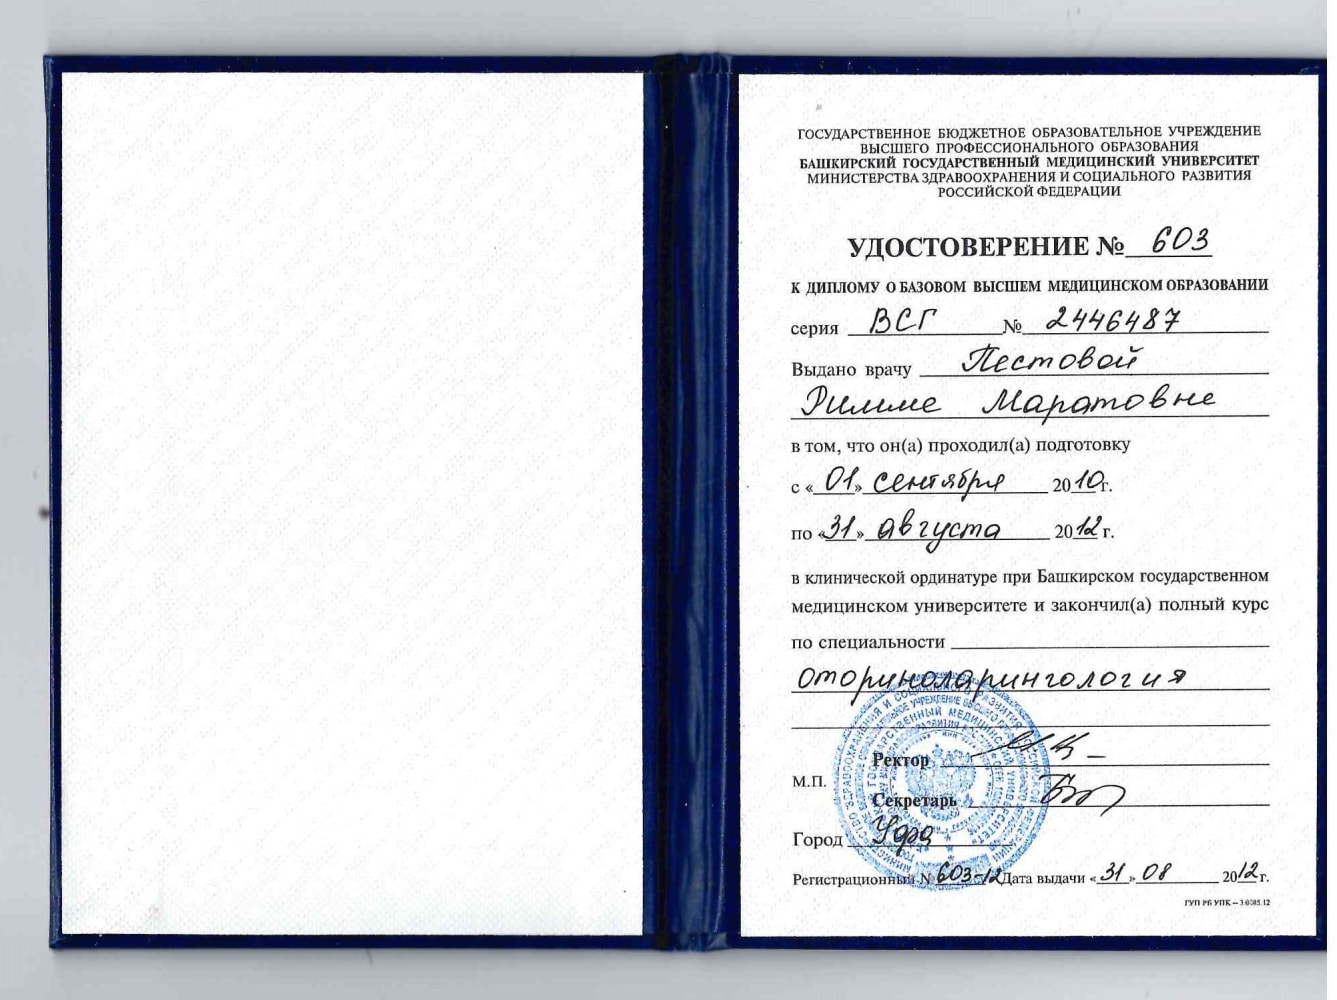 ГОСУДАРСТВЕННОЕ БЮДЖЕТНОЕ ОБРАЗОВАТЕЛЬНОЕ УЧРЕЖДЕНИЕ
ВЫСШЕГО ПРОФЕССИОНАЛЬНОГО ОБРАЗОВАНИЯ
БАШКИРСКИЙ ГОСУДАРСТВЕННЫЙ МЕДИЦИНСКИЙ УНИВЕРСИТЕТ
МИНИСТЕРСТВА ЗДРАВООХРАНЕНИЯ И СОЦИАЛЬНОГО РАЗВИТИЯ
РОССИЙСКОЙ ФЕДЕРАЦИИ
УДОСТОВЕРЕНИЕ № 603
К ДИПЛОМУ О БАЗОВОМ ВЫСШЕМ МЕДИЦИНСКОМ ОБРАЗОВАНИИ
серия ВСГ № 2446487
Выдано врачу Пестовой
Римме Маратовне
в том, что он(а) проходил(а) подготовку
с «01» сентября 2010г.
по «31» августа 2012 г.
в клинической ординатуре при Башкирском государственном
медицинском университете и закончил(а) полный курс
по специальности
Оториноларингология
Ректор
М.П.
Секретарь
Город Уфа
Регистрационный № 603-12 Дата выдачи «31» 08 2012 г.